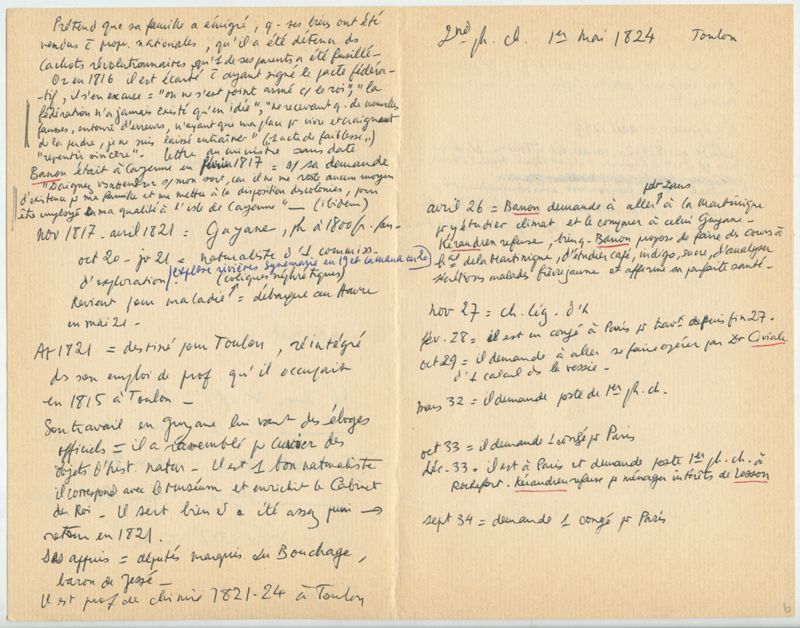 Prétend que sa famille a émigré, q. ses biens ont été
vendus c propr. nationales, qu'il a été détenu ds
cachots révolutionnaires qu'1 de ses parents a été fusillé -
Or en 1816 il est écarté c ayant signé le pacte fédéra-
tif, il s'en excuse = "on ne s'est point armé c/ le roi", "la
fédération n'a jamais existé qu'en idée", "ne recevant q. de nouvelles
fausses, entouré d'erreurs, n'ayant que ma place pr vivre et craignant
de la perdre, je me suis laissé entraîner" ("1 acte de faiblesse")
"repentir sincère" - lettre au ministre sans date
Banon était à Cayenne en 1817 = s/ sa demande
"Daignez s/ mon sort, car il ne me reste aucun moyen
d'existence pr ma famille et me mettre à la disposition des colonies, pour
être employé en ma qualité à l'isle de Cayenne" - (ibidem)
Nov 1817 - avril 1821 = Guyane, ph à 1800f. p. an -
oct 20 - jr 21 = naturaliste d'1 commiss.
d'exploration (explore rivières Synemarie en 19 et la mana en 20)
(coliques néphrétiques)
Revient pour maladie = débarque au Havre
en mai 21 -
At 1821 = destiné pour Toulon, réintégré
ds son emploi de prof qu'il occupait
en 1815 à Toulon -
Son travail en guyane lui vaut des éloges
officiels = il a rassemblé pr Cuvier des
objets d'hist. natur - Il est 1 bon naturaliste
il correspond avec le Muséum et enrichit le Cabinet
du Roi - Il sert bien
retour en 1821.
Ses appuis = députés marquis du Bouchage,
baron de Jessé -
Il est prof de chimie 1821-24 à Toulon
2nd ph. ch. 1er mai 1824 Toulon
pdt 2 ans
avril 26 = Banon demande à aller à la Martinique
pr y étudier climat et le comparer à celui Guyane -
Kéraudren refuse, Banon propose de faire des cours à
de la Martinique, d'étudier café, indigo, sucre, d'analyser
sécrétions malades fièvre jaune et affirme sa parfaite santé -
nov 27 = ch. lég. d'h
fév. 28 = il est en congé à Paris pr depuis fin 27 -
oct 29 = il demande à aller se faire opérer par Dr Civiale
d'1 calcul ds la vessie -
mars 32 = il demande poste de 1er ph. ch.
oct 33 = il demande 1 congé pr Paris
déc. 33 - il est à Paris et demande poste 1er ph. ch. à
Rochefort - Kéraudren refuse pr ménager intérêts de Lesson
sept 34 = demande 1 congé pr Paris
b